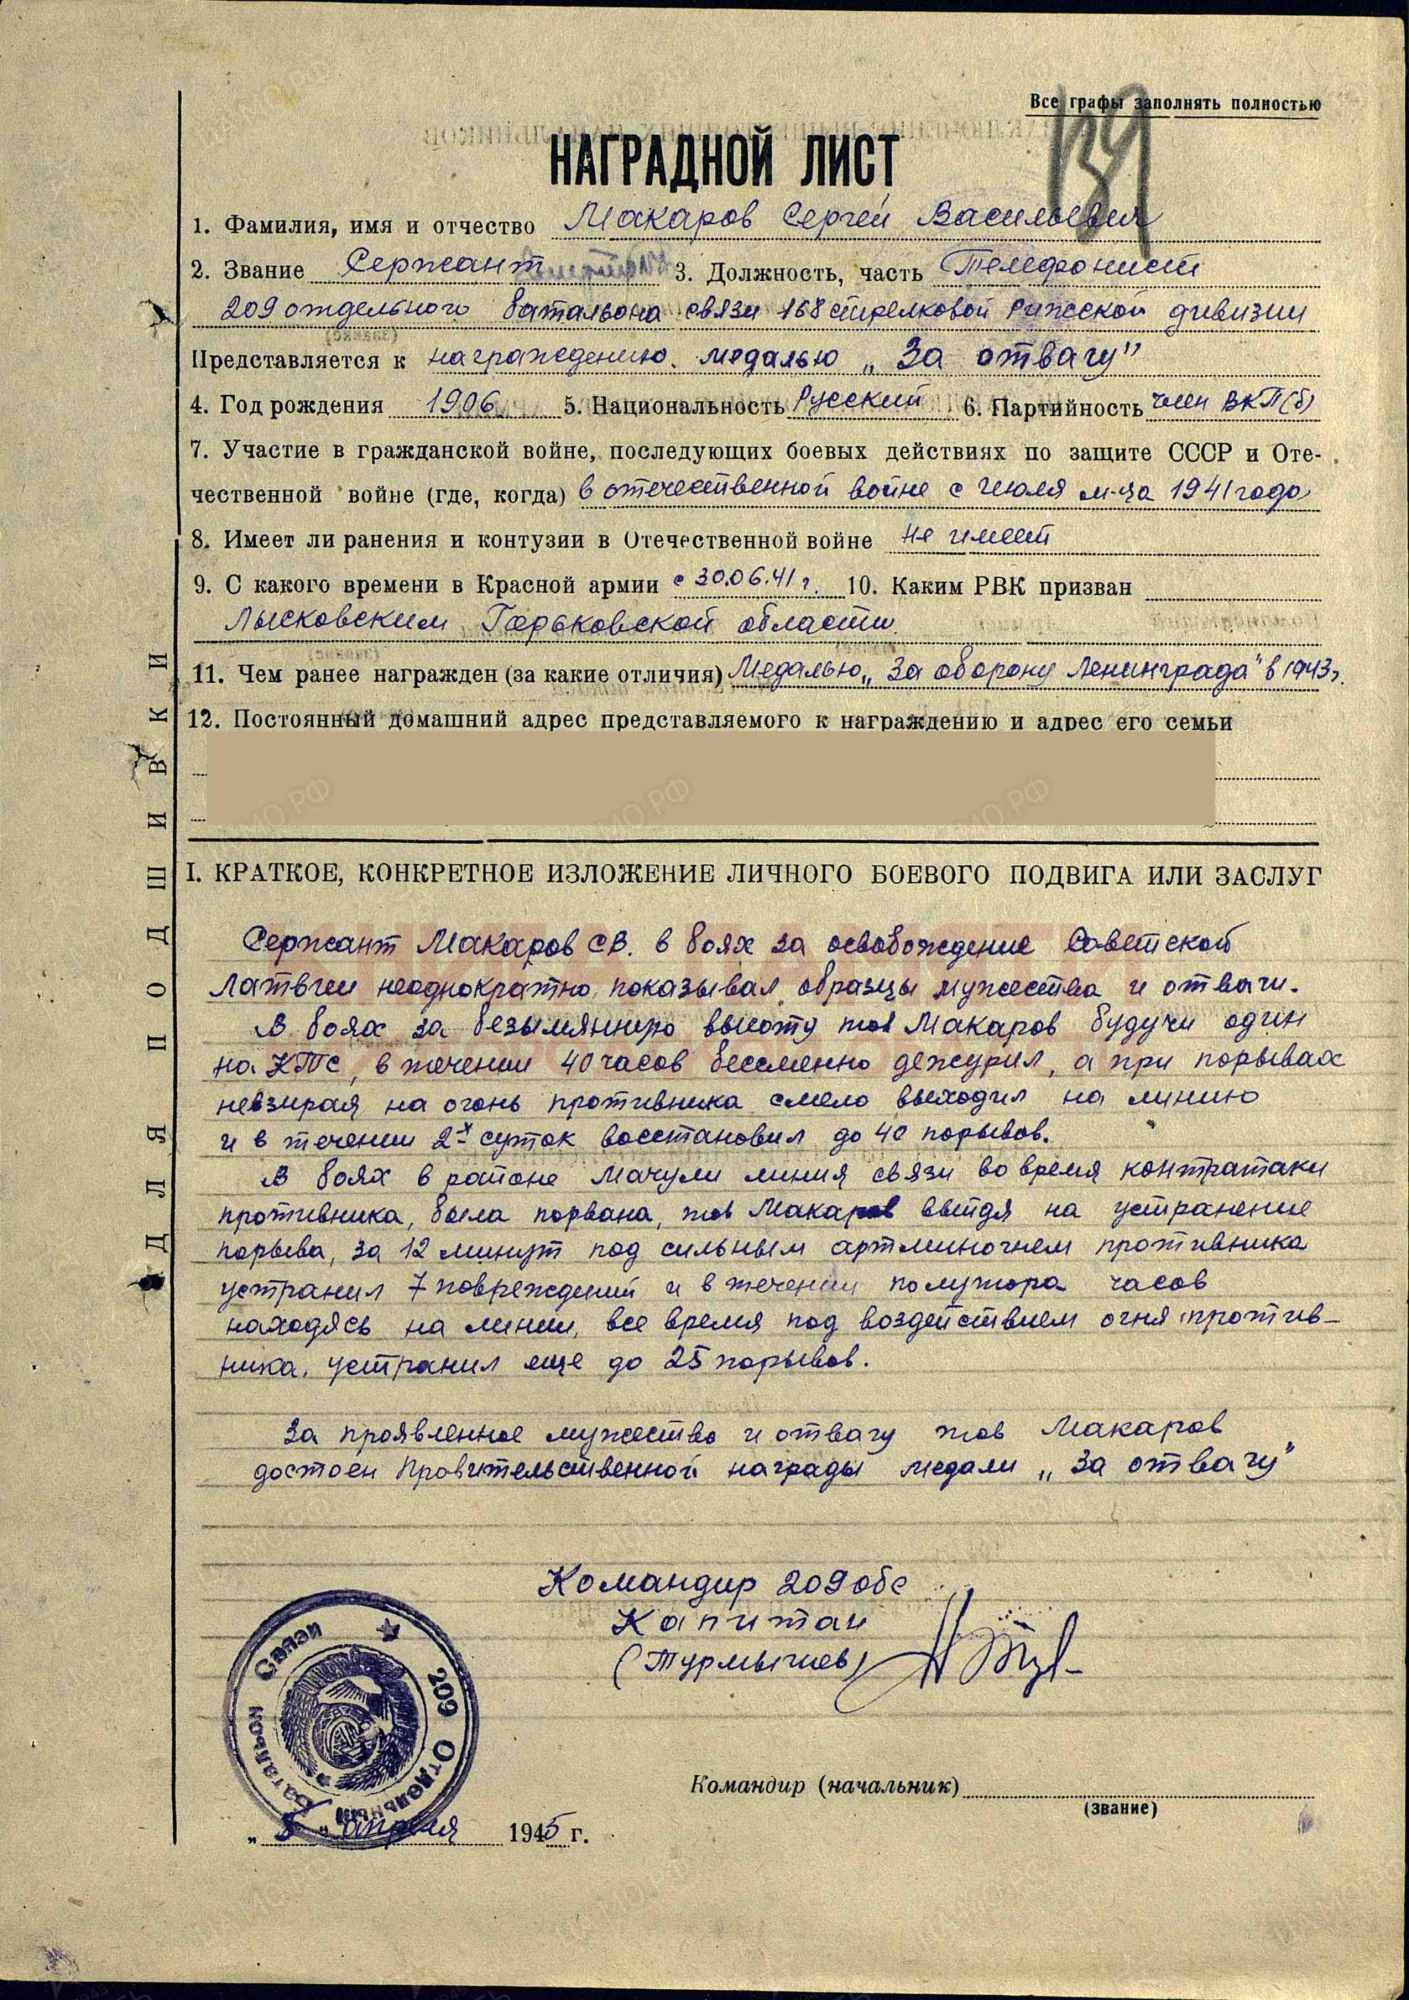 Все графы заполнять полностью
139
НАГРАДНОЙ ЛИСТ
1. Фамилия, имя и отчество Макаров Сергей Васильевич
2. Звание Сержант 3. Должность, часть Телефонист
209 отдельного батальона связи 168 стрелковой Рижской дивизии
Представляется к награждению. медалью „За отвагу"
4. Год рождения 1906 5. Национальность Русский 6. Партийность член ВКП(б)
7. Участие в гражданской войне, последующих боевых действиях по защите СССР и Оте-
чественной войне (где, когда) в отечественной войне с июля м-ца 1941 года
8. Имеет ли ранения и контузии в Отечественной войне не имеет
9. С какого времени в Красной армии с 30.06.41 г. 10. Каким РВК призван
Лысковским Горьковской области
11. Чем ранее награжден (за какие отличия) Медалью „За оборону Ленинграда" в 1943 г.
12. Постоянный домашний адрес представляемого к награждению и адрес его семьи
ДЛЯ ПОДШИВКИ
I. КРАТКОЕ, КОНКРЕТНОЕ ИЗЛОЖЕНИЕ ЛИЧНОГО БОЕВОГО ПОДВИГА ИЛИ ЗАСЛУГ
Сержант Макаров С.В. в боях за освобождение Советской
Латвии неоднократно показывал образцы мужества и отваги.
В боях за безымянную высоту тов Макаров будучи один
на КТС, в течении 40 часов бессменно дежурил, а при порывах
невзирая на огонь противника смело выходил на линию
и в течении 2х суток восстановил до 40 порывов.
В боях в районе Мачули линия связи во время контратаки
противника, была порвана, тов Макаров выйдя на устранение
порыва, за 12 минут под сильным артминогнем противника
устранил 7 повреждений и в течении полутора часов
находясь на линии, все время под воздействием огня против-
ника, устранил еще до 25 порывов.
За проявленное мужество и отвагу тов Макаров
достоен Правительственной награды медали „За отвагу"
Командир 209 обс
Капитан
(Турмышев)
209 Отдельный Батальон Связи
Командир (начальник)
(звание)
„5" апреля 1945 г.